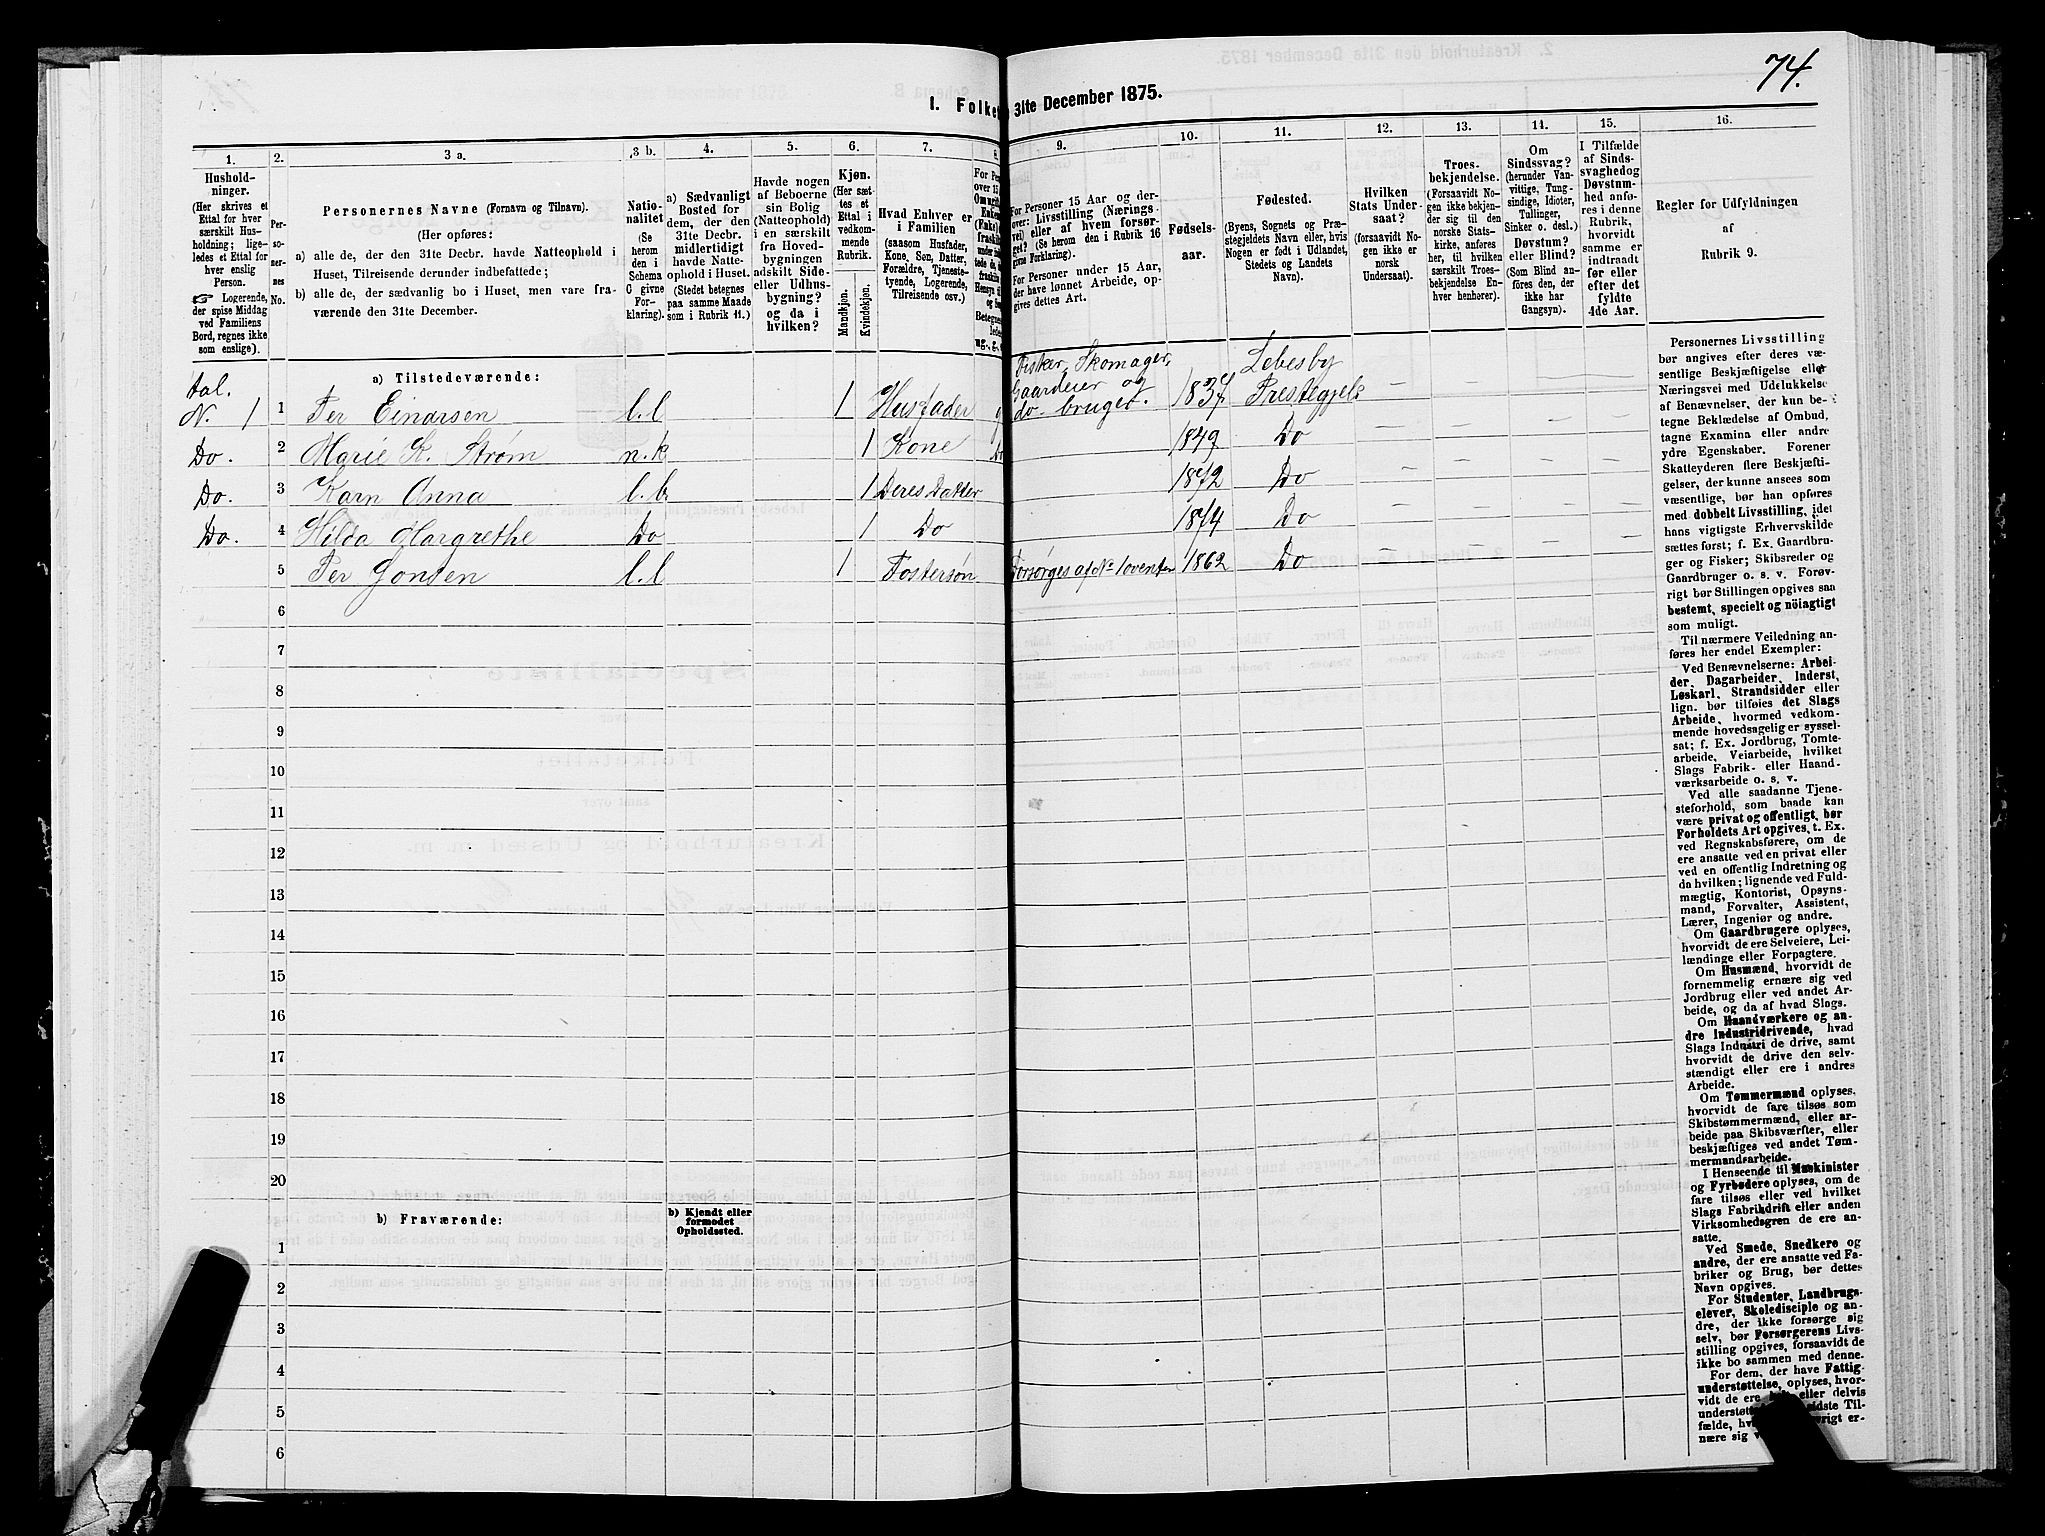 74.
I. Folket
31te December 1875.
1.
Hushold-
ninger.
(Her skrives et
Ettal for hver
særskilt Hus-
holdning; lige-
ledes et Ettal for
hver enslig
Person.
☞ Logerende,
der spise Middag
ved Familiens
Bord, regnes ikke
som enslige).
2.
Per-
so-
ner-
nes
No.
3 a.
Personernes Navne (Fornavn og Tilnavn).
(Her opføres:
a) alle de, der den 31te Decbr. havde Natteophold i
Huset, Tilreisende derunder indbefattede;
b) alle de, der sædvanlig bo i Huset, men vare fra-
værende den 31te December.
3 b.
Natio-
nalitet
(Se
herom
den i
Schema
C givne
For-
klaring).
4.
a) Sædvanligt
Bosted for
dem, der den
31te Decbr.
midlertidigt
havde Natte-
ophold i Huset.
(Stedet betegnes
paa samme Maade
som i Rubrik 11.)
5.
Havde nogen
af Beboerne
sin Bolig
(Natteophold)
i en særskilt
fra Hoved-
bygningen
adskilt Side-
eller Udhus-
bygning?
og da i
hvilken?
6.
Kjøn.
(Her sæt-
tes et
Ettal i
vedkom-
mende
Rubrik.
Mandkjøn.
Kvindekjøn.
7.
Hvad Enhver er
i Familien
(saasom Husfader,
Kone, Søn, Datter,
Forældre, Tjeneste-
tyende, Logerende,
Tilreisende osv.)
9.
For Personer 15 Aar og der-
over: Livsstilling (Nærings-
vei) eller af hvem forsør-
get? (Se herom den i Rubrik 16
givne Forklaring).
For Personer under 15 Aar,
der have lønnet Arbeide, op-
gives dettes Art.
10.
Fødsels-
aar.
11.
Fødested.
(Byens, Sognets og Præ-
stegjeldets Navn eller, hvis
Nogen er født i Udlandet,
Stedets og Landets
Navn).
12.
Hvilken
Stats Under-
saat?
(forsaavidt No-
gen ikke er
norsk
Undersaat).
13.
Troes-
bekjendelse.
(Forsaavidt No-
gen ikke bekjen-
der sig til den
norske Stats-
kirke, anføres
her, til hvilken
særskilt Troes-
bekjendelse En-
hver henhører).
14.
Om
Sindssvag?
(herunder Van-
vittige, Tung-
sindige, Idioter,
Tullinger,
Sinker o. desl.)
Døvstum?
eller Blind?
(Som Blind an-
føres den, der
ikke har
Gangsyn).
15.
I Tilfælde
af Sinds-
svaghed og
Døvstum-
hed anfø-
res i denne
Rubrik,
hvorvidt
samme er
indtraadt
før eller
efter det
fyldte
4de Aar.
16.
Regler for Udfyldningen
af
Rubrik 9.
a) Tilstedeværende:
N. 1 1 Per Einarsen l.l 1 Husfader Fisker, Skomager, Gaardeier og do-bruger. 1837 Lebesby Prestegjeld — — — —
Do. 2 Marie K. Strøm n.k 1 Kone 1849 Do — — — —
Do. 3 Karn Anna l.b. 1 Deres Datter 1872 Do — — — —
Do. 4 Hilda Margrethe Do 1 Do 1874 Do — — — —
5 Per Jonsen l.l 1 Fostersøn Forsørges af No 1 1862 Do — — — —
6
7
8
9
10
11
12
13
14
15
16
17
18
19
20
b) Fraværende:
b) Kjendt eller
formodet
Opholdssted.
1
2
3
4
5
6
Personernes Livsstilling
bør angives efter deres væ-
sentlige Beskjæftigelse eller
Næringsvei med Udelukkelse
af Benævnelser, der kun be-
tegne Beklædelse af Ombud,
tagne Examina eller andre
ydre Egenskaber. Forener
Skatteyderen flere Beskjæfti-
gelser, der kunne ansees som
væsentlige, bør han opføres
med dobbelt Livsstilling, idet
hans vigtigste Erhvervskilde
sættes først; f. Ex. Gaardbru-
ger og Fisker; Skibsreder og
Gaardbruger o. s. v. Forøv-
rigt bør Stillingen opgives saa
bestemt, specielt og nöiagtigt
som muligt.
Til nærmere Veiledning an-
føres her endel Exempler:
Ved Benævnelserne: Arbei-
der, Dagarbeider, Inderst,
Løskarl, Strandsidder eller
lign. bør tilføies det Slags
Arbeide, hvormed vedkom-
mende hovedsagelig er syssel-
sat; f. Ex. Jordbrug, Tomte-
arbeide, Veiarbeide, hvilket
Slags Fabrik- eller Haand-
værksarbeide o. s. v.
Ved alle saadanne Tjene-
steforhold, som baade kan
være privat og offentligt, bør
Forholdets Art opgives, t. Ex.
ved Regnskabsførere, om de
ere ansatte ved en privat eller
ved en offentlig Indretning og
da hvilken; lignende ved Fuld-
mægtig, Kontorist, Opsyns-
mand, Forvalter, Assistent,
Lærer, Ingeniør og andre.
Om Gaardbrugere oplyses,
hvorvidt de ere Selveiere, Lei-
lændinge eller Forpagtere.
Om Husmænd, hvorvidt de
fornemmelig ernære sig ved
Jordbrug eller ved andet Ar-
beide, og da af hvad Slags.
Om Haandværkere og an-
dre Industridrivende, hvad
Slags Industri de drive, samt
hvorvidt de drive den selv-
stændigt eller ere i andres
Arbeide.
Om Tømmermænd oplyses,
hvorvidt de fare tilsøs som
Skibstømmermænd, eller ar-
beide paa Skibsværfter, eller
beskjæftiges ved andet Tøm-
mermandsarbeide.
I Henseende til Maskinister
og Fyrbødere oplyses, om de
fare tilsøs eller ved hvilket
Slags Fabrikdrift eller anden
Virksomhedsgren de ere an-
satte.
Ved Smede, Snedkere og
andre, der ere ansatte ved Fa-
briker og Brug, bør dettes
Navn opgives.
For Studenter, Landbrugs-
elever, Skoledisciple og an-
dre, der ikke forsørge sig
selv, bør Forsørgerens Livs-
stilling opgives, forsaavidt de
ikke bo sammen med denne.
For dem, der have Fattig-
understøttelse, oplyses, hvor-
vidt de ere eller delvis
sidste Til-